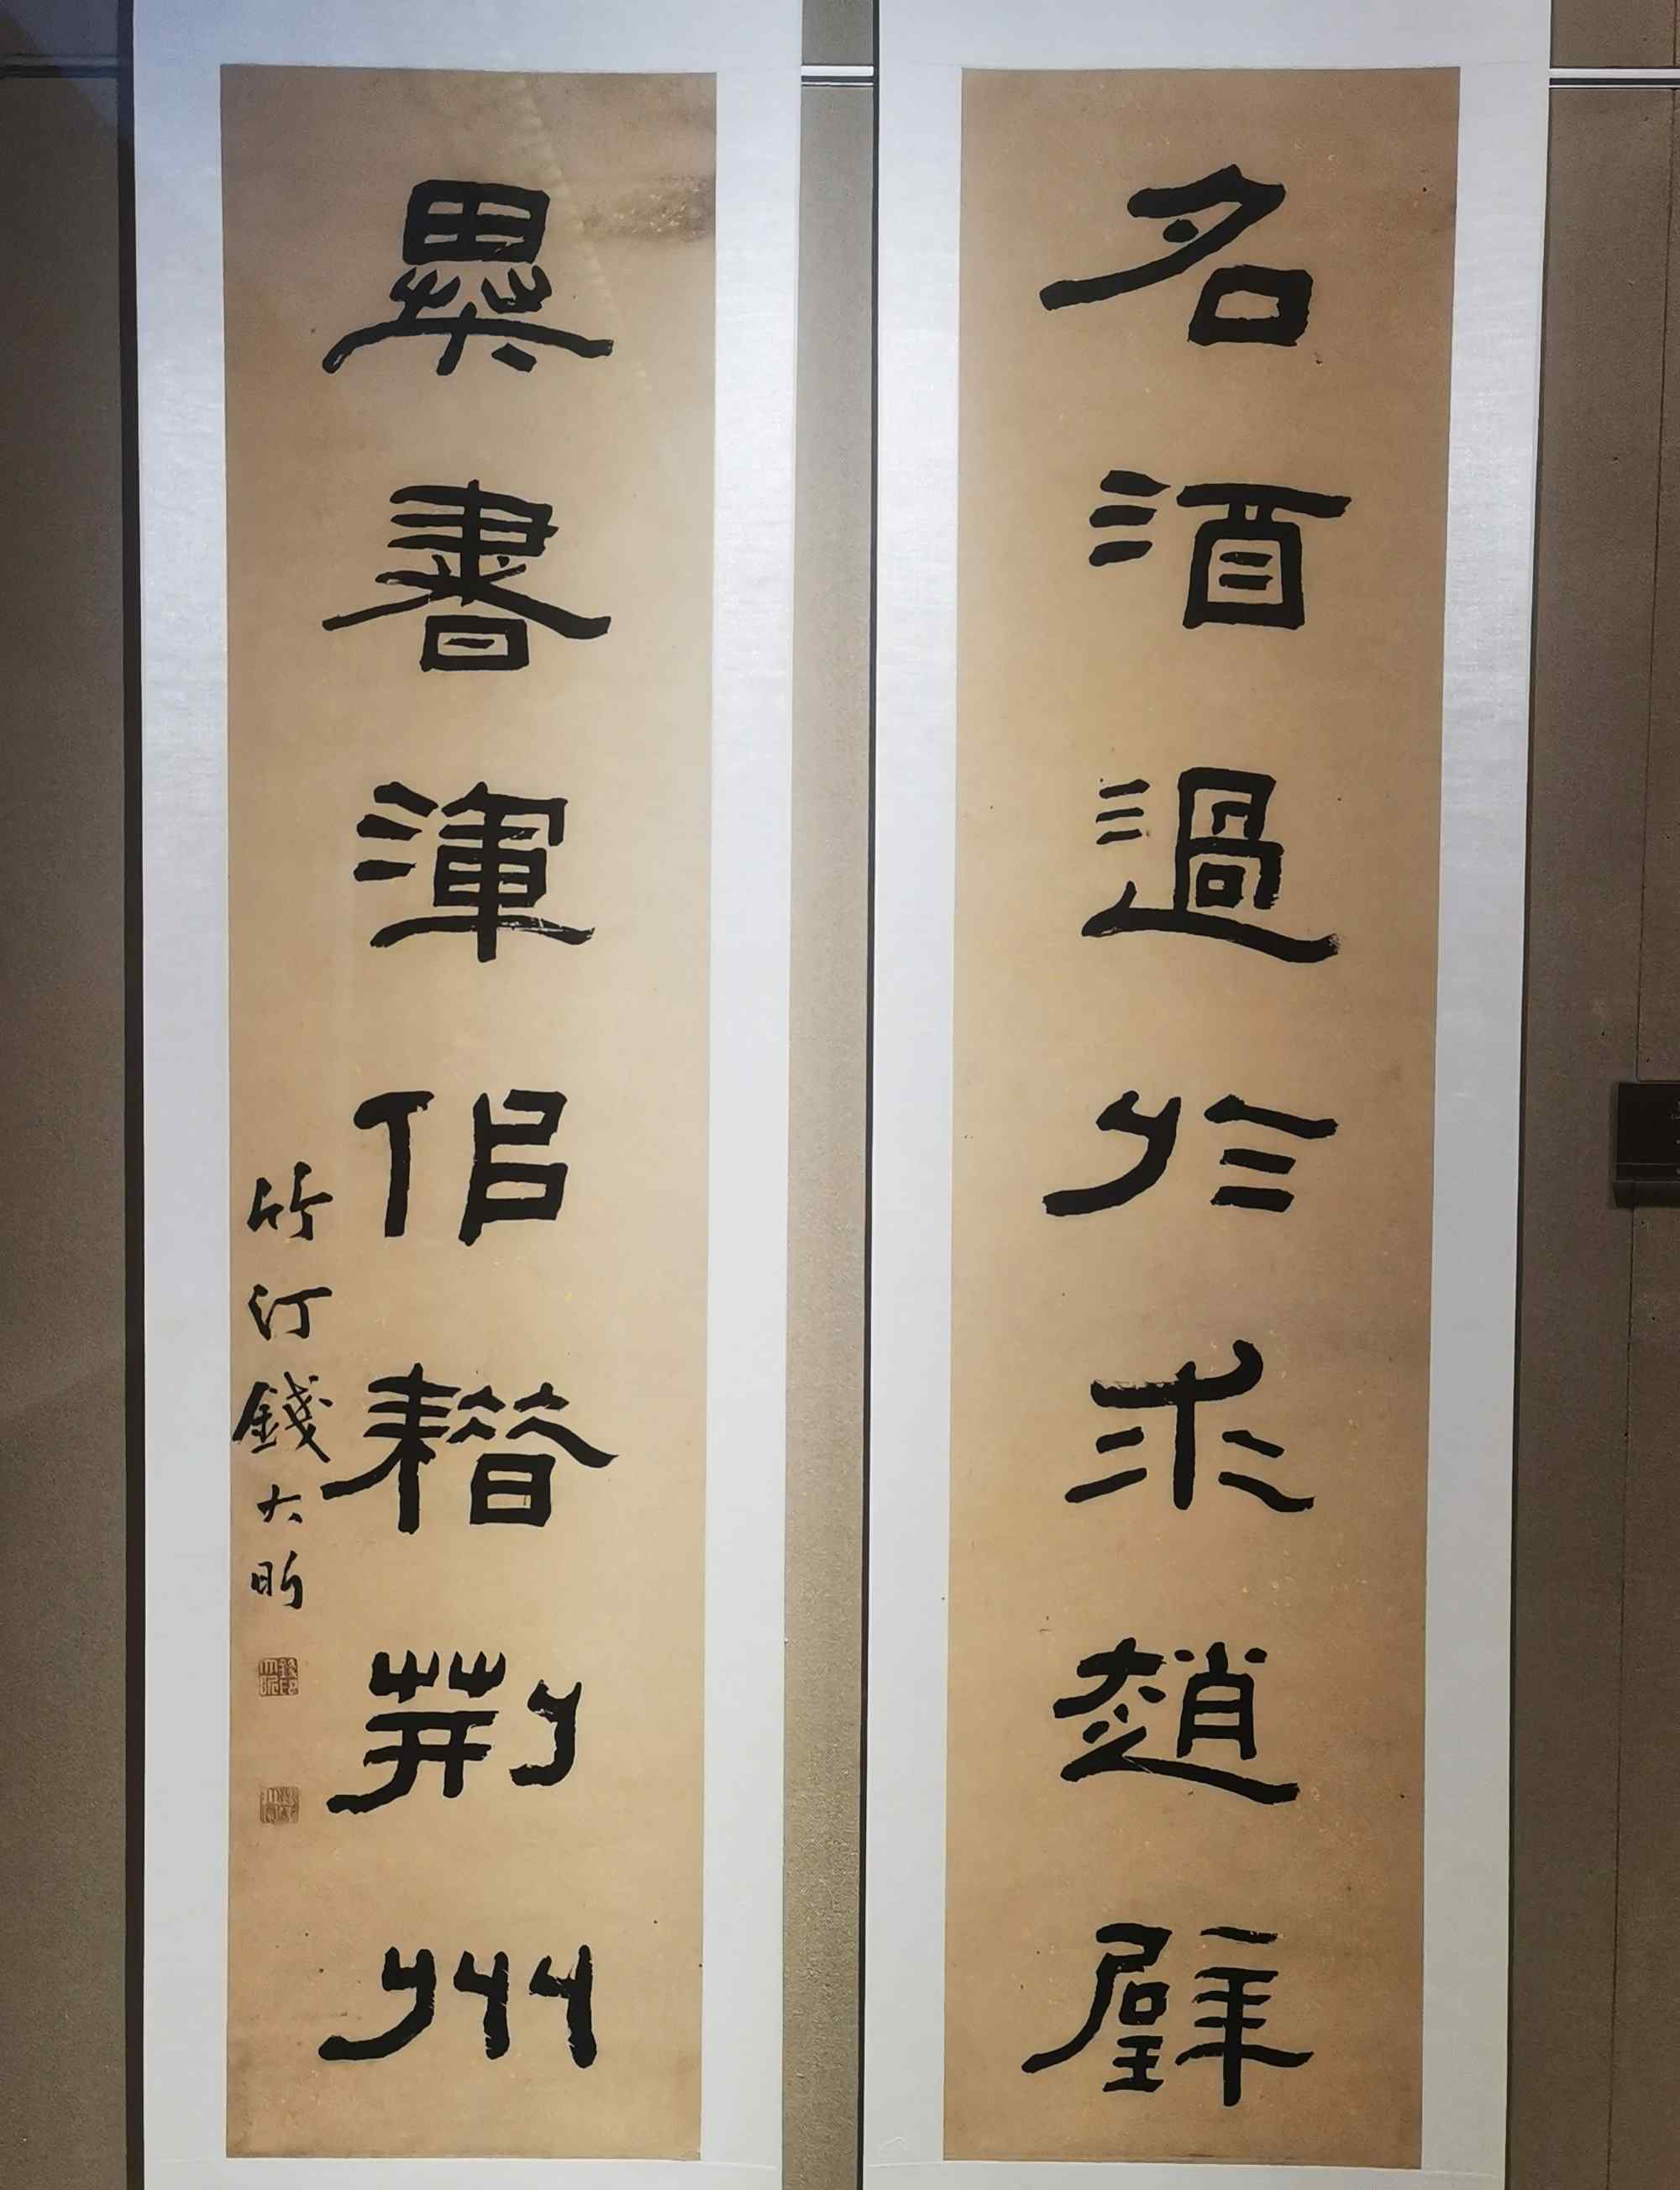 名酒過於求趙璧
異書渾佀耤荆州
竹汀錢大昕